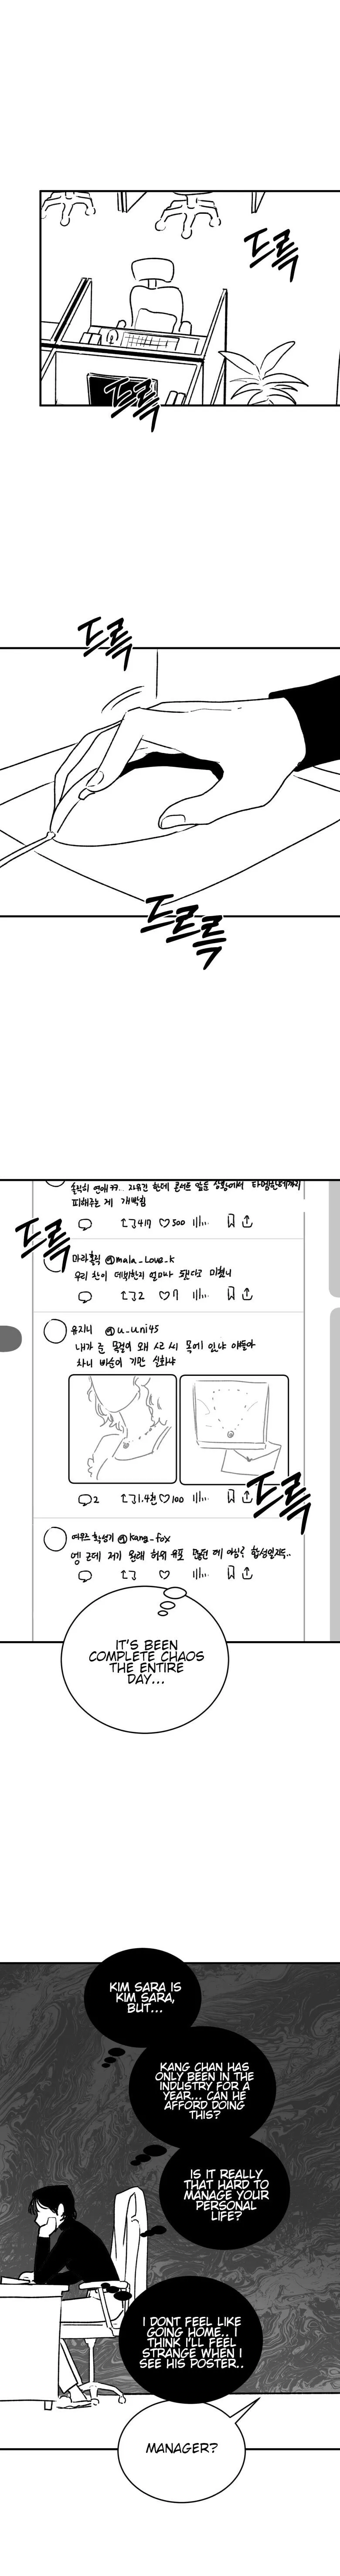 드륵
드륵
드륵
드르륵
솔직히 연애ㅋㅋ.. 자유긴 한데 콘서트 앞둔 상황에서 타멤한테까지
피해주는 게 개빡침
417 500
드륵
마라홀릭 @mala_Love_k
우리 찬이 데뷔한지 얼마나 됐다고 미쳤니
2 7
유지니 @u_uni45
내가 준 목걸이 왜 사라 씨 목에 있냐 이놈아
차니 빠순이 기만 실화냐
2 1.4천 100
드륵
여우즈 확성기 @kang_fox
엥 근데 저기 원래 허위 유포 많던 데 아님? 합성일지도..
IT'S BEEN
COMPLETE CHAOS
THE ENTIRE
DAY...
KIM SARA IS
KIM SARA,
BUT...
KANG CHAN HAS
ONLY BEEN IN THE
INDUSTRY FOR A
YEAR... CAN HE
AFFORD DOING
THIS?
IS IT REALLY
THAT HARD TO
MANAGE YOUR
PERSONAL
LIFE?
I DONT FEEL LIKE
GOING HOME.. I
THINK I'LL FEEL
STRANGE WHEN I
SEE HIS POSTER..
MANAGER?